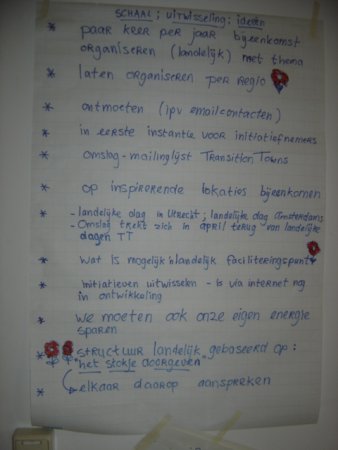 SCHAAL ; UITWISSELING : ideeën
* paar keer per jaar bijeenkomst
organiseren (landelijk) met thema
* laten organiseren per regio
* ontmoeten (ipv emailcontacten)
* in eerste instantie voor initiatiefnemers
* omslag-mailinglijst Transition Towns
* op inspirerende lokaties bijeenkomen
* - landelijke dag in Utrecht; landelijke dag Amsterdam
- Omslag trekt zich in april terug van landelijke
dagen TT
* wat is mogelijk landelijk faciliteringspunt
* initiatieven uitwisselen - is via internet nog
in ontwikkeling
* we moeten ook onze eigen energie
sparen
* structuur landelijk gebaseerd op:
"het stokje doorgeven"
* elkaar daarop aanspreken